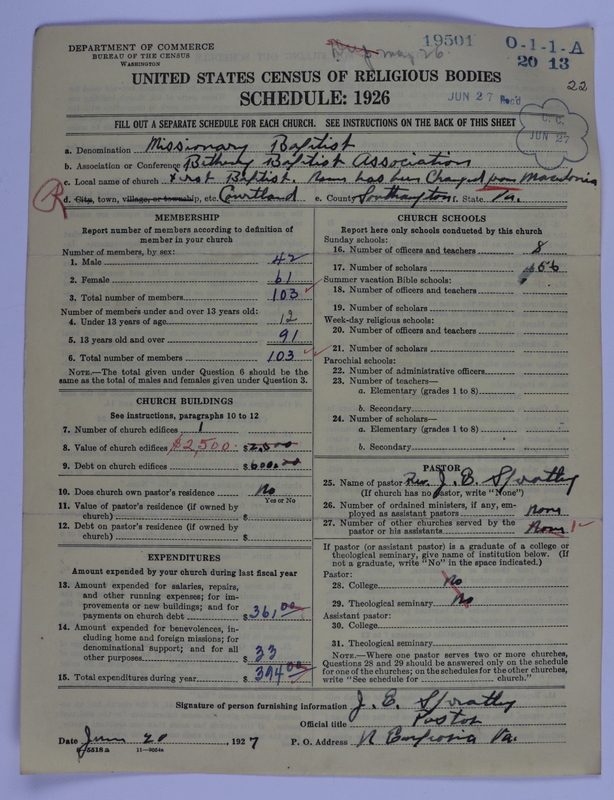 DEPARTMENT OF COMMERCE
BUREAU OF THE CENSUS
WASHINGTON
May 26
19501
0-1-1-A
20 13
22
UNITED STATES CENSUS OF RELIGIOUS BODIES
SCHEDULE: 1926
JUN 27 Rec'd
C. C.
JUN 27
FILL OUT A SEPARATE SCHEDULE FOR EACH CHURCH. SEE INSTRUCTIONS ON THE BACK OF THIS SHEET
a. Denomination Missionary Baptist
b. Association or Conference Bethany Baptist Association
c. Local name of church First Baptist. Name has been Changed from Macedonia
R
d. City, town, village, or township, etc. Courtland e. County Southampton f. State Va.
MEMBERSHIP
Report number of members according to definition of member in your church
Number of members, by sex:
1. Male 42
2. Female 61
3. Total number of members 103
Number of members under and over 13 years old:
4. Under 13 years of age 12
5. 13 years old and over 91
6. Total number of members 103
NOTE.—The total given under Question 6 should be the same as the total of males and females given under Question 3.
CHURCH BUILDINGS
See instructions, paragraphs 10 to 12
7. Number of church edifices 1
8. Value of church edifices $2,500. $ 2,500
9. Debt on church edifices $ 600.00
10. Does church own pastor's residence No
Yes or No
11. Value of pastor's residence (if owned by church) $
12. Debt on pastor's residence (if owned by church) $
EXPENDITURES
Amount expended by your church during last fiscal year
13. Amount expended for salaries, repairs, and other running expenses; for improvements or new buildings; and for payments on church debt $ 361.00
14. Amount expended for benevolences, including home and foreign missions; for denominational support; and for all other purposes $ 33
15. Total expenditures during year $ 394.00
CHURCH SCHOOLS
Report here only schools conducted by this church
Sunday schools:
16. Number of officers and teachers 8
17. Number of scholars 56
Summer vacation Bible schools:
18. Number of officers and teachers
19. Number of scholars
Week-day religious schools:
20. Number of officers and teachers
21. Number of scholars
Parochial schools:
22. Number of administrative officers
23. Number of teachers—
a. Elementary (grades 1 to 8)
b. Secondary
24. Number of scholars—
a. Elementary (grades 1 to 8)
b. Secondary
PASTOR
25. Name of pastor Rev. J. E. Spratly
(If church has no pastor, write "None")
26. Number of ordained ministers, if any, employed as assistant pastors None
27. Number of other churches served by the pastor or his assistants None 1
If pastor (or assistant pastor) is a graduate of a college or theological seminary, give name of institution below. (If not a graduate, write "No" in the space indicated.)
Pastor:
28. College No
29. Theological seminary No
Assistant pastor:
30. College
31. Theological seminary
NOTE.—Where one pastor serves two or more churches, Questions 28 and 29 should be answered only on the schedule for one of the churches; on the schedules for the other churches, write "See schedule for church."
Signature of person furnishing information J. E. Spratly
Official title Pastor
Date June 20, 1927 P. O. Address N Emporia Va.
8-5518a 11-9054a